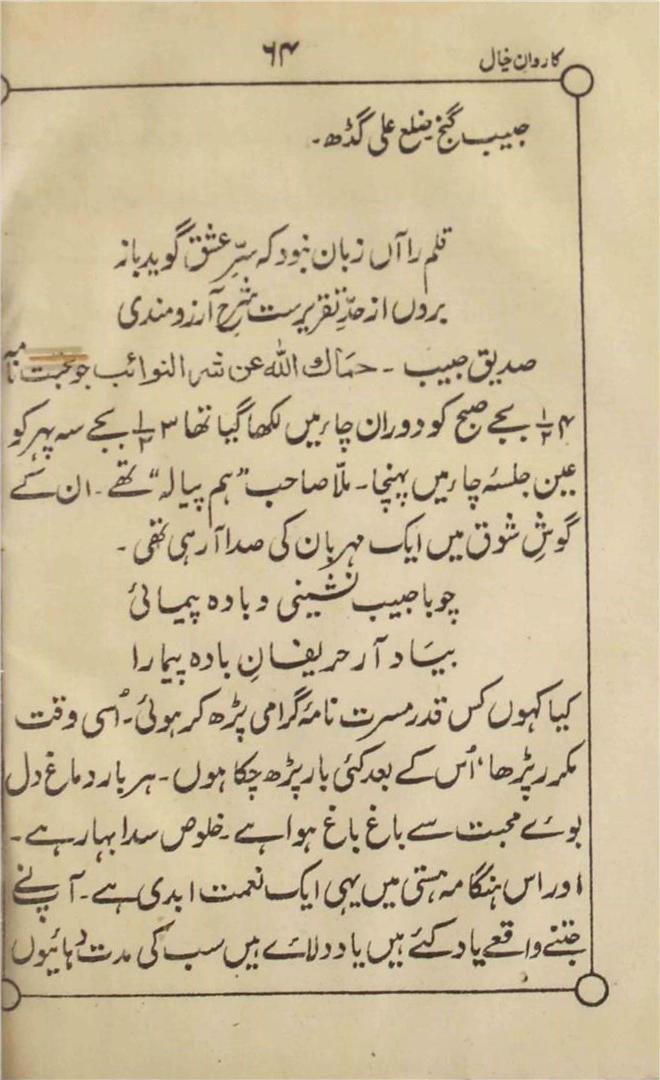 کاروان خیال
۶۴
حبیب گنج ضلع علی گڈھ۔
قلم را آں زبان نبود کہ سرِّ عشق گوید باز
بروں از حدِّ تقریرست شرحِ آرزومندی
صدیق حبیب ۔ حماک اللہ عن شر النوائب جو محبت نامہ
۴ ۱/۲ بجے صبح کو دوران چاء میں لکھا گیا تھا ۳ ۱/۲ بجے سہ پہر کو
عین جلسۂ چاء میں پہنچا۔ ملّا صاحب "ہم پیالہ" تھے۔ ان کے
گوشِ شوق میں ایک مہربان کی صدا آرہی تھی ۔
چو با حبیب نشینی و بادہ پیمائی
بیاد آر حریفانِ بادہ پیما را
کیا کہوں کس قدر مسرت نامۂ گرامی پڑھ کر ہوئی۔ اُسی وقت
مکرر پڑھا، اُس کے بعد کئی بار پڑھ چکا ہوں۔ ہر بار دماغ دل
بوئے محبت سے باغ باغ ہوا ہے۔ خلوص سدا بہار ہے۔
اور اس ہنگامہ ہستی میں یہی ایک نعمت ابدی ہے۔ آپ نے
جتنے واقعے یاد کئے ہیں یاد دلائے ہیں سب کی مدت دہائیوں